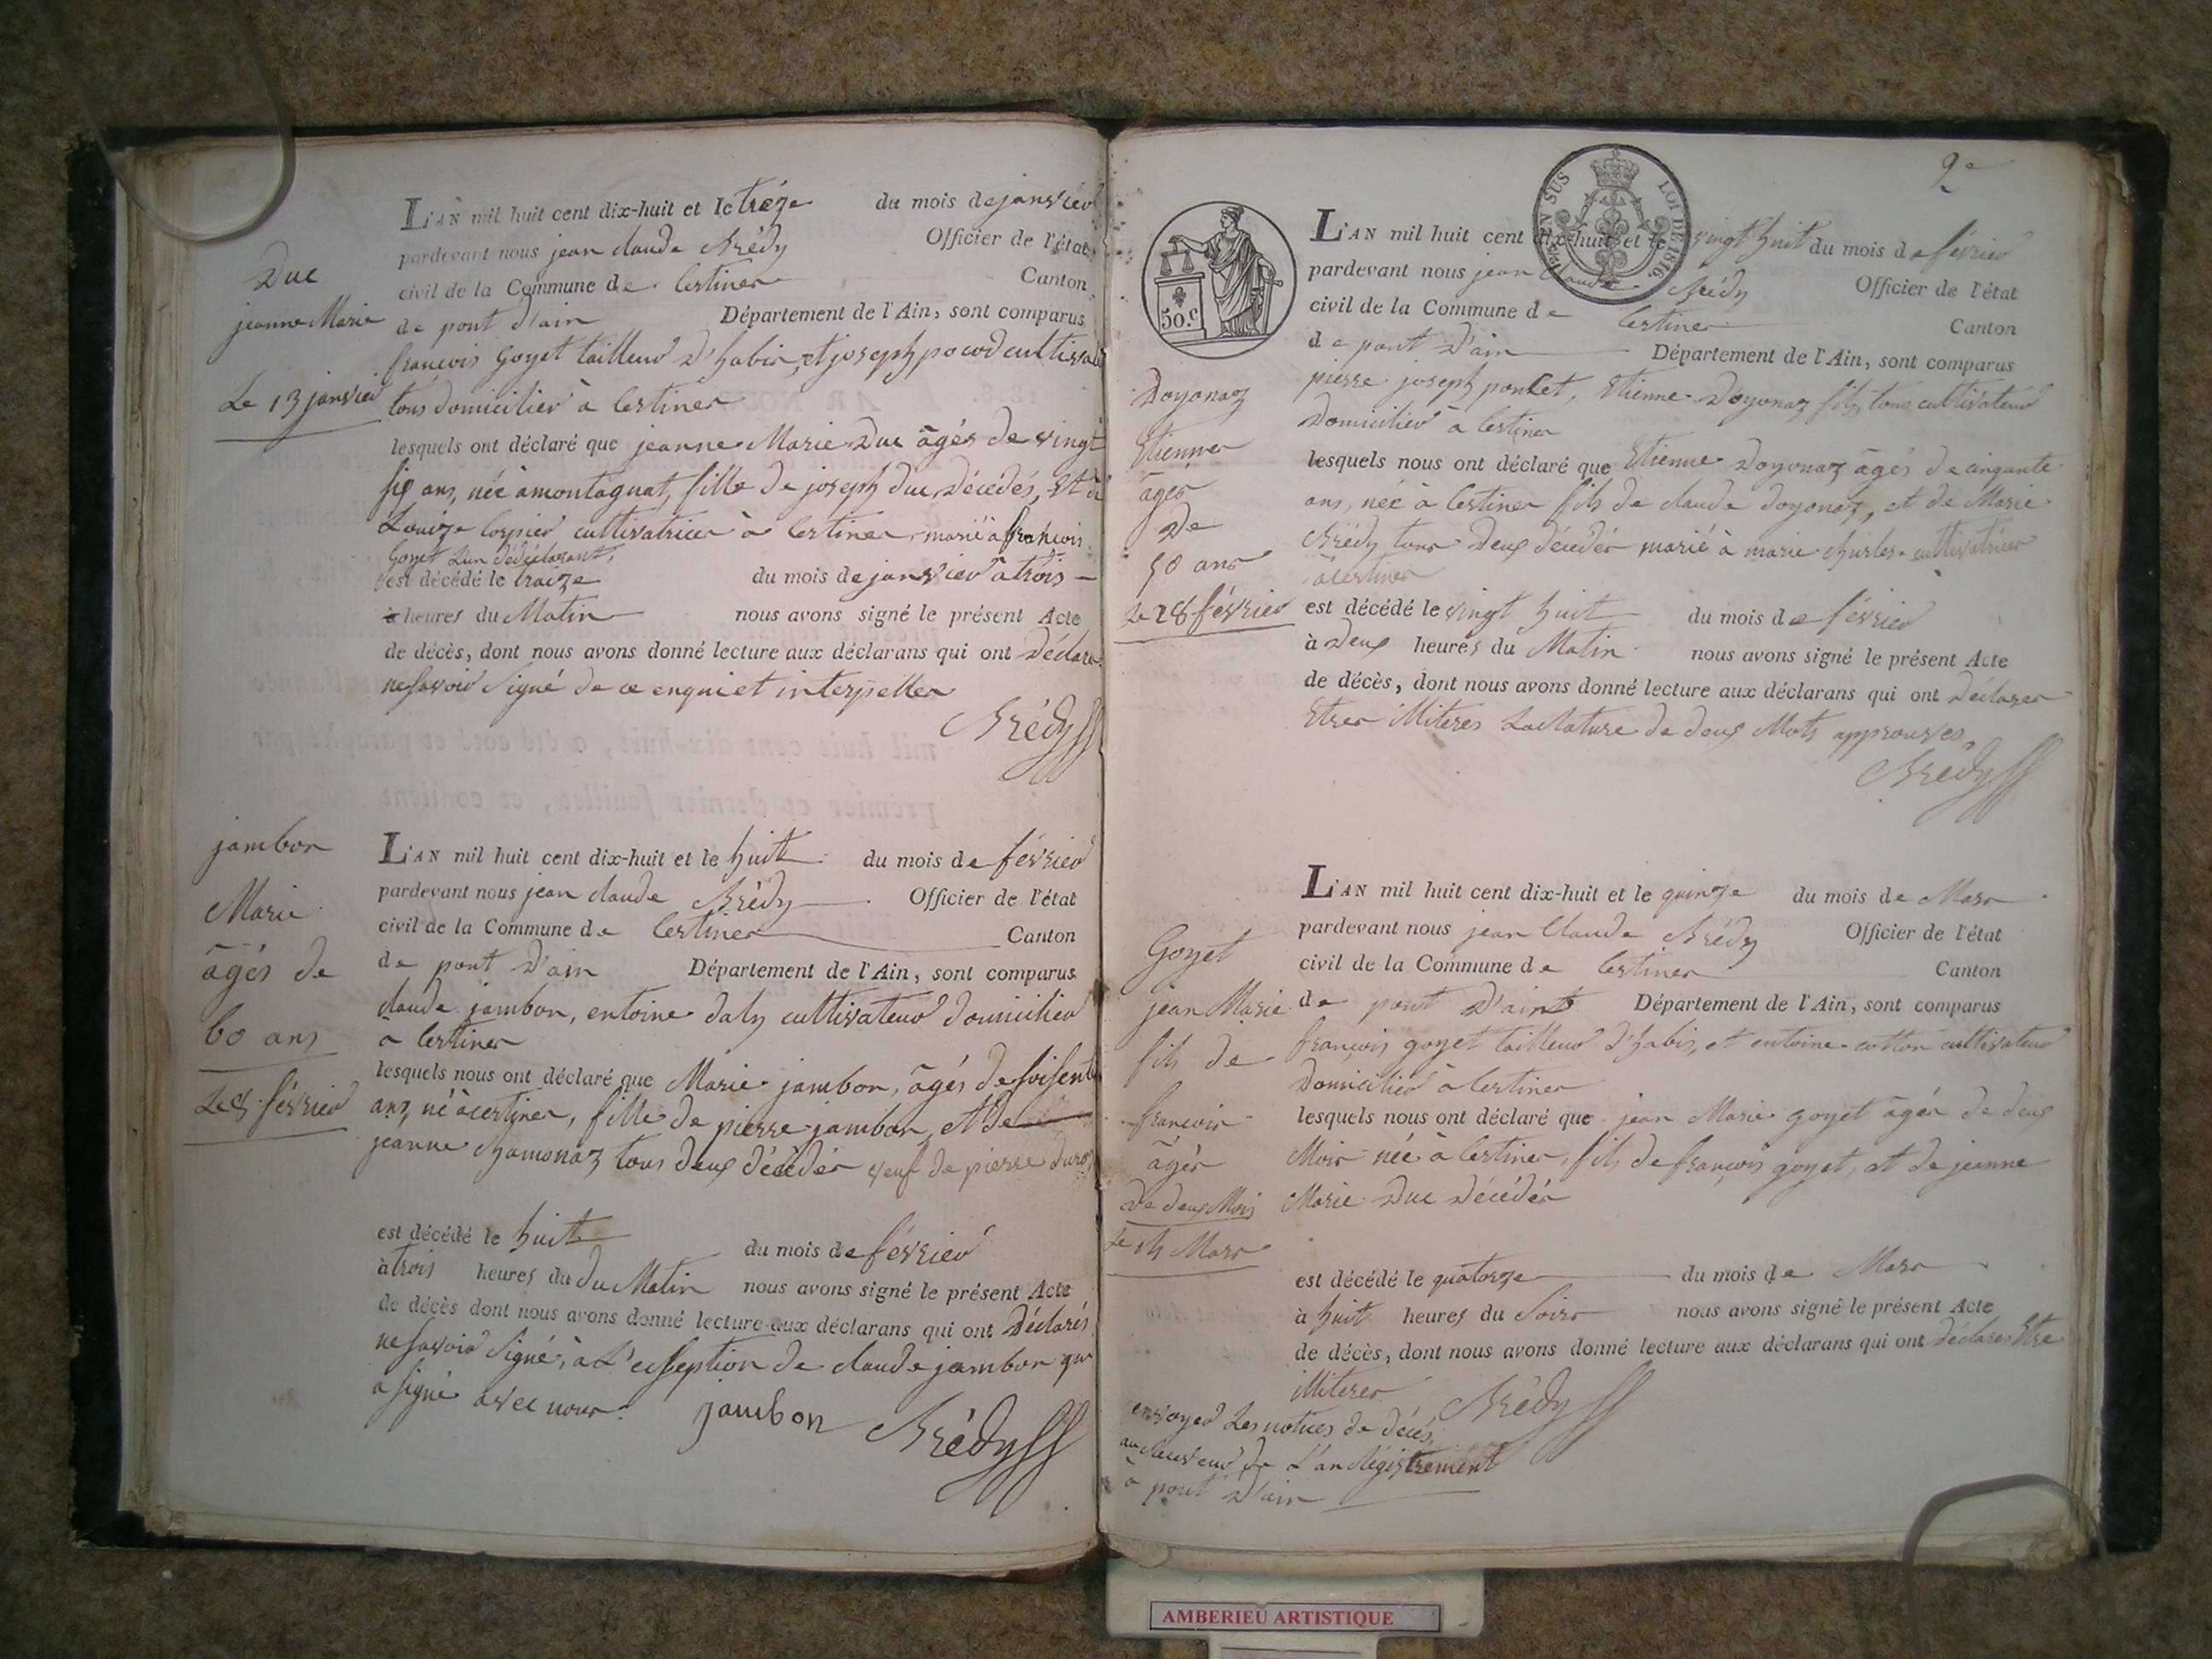 Duc
jeanne Marie
Le 13 janvier
L'AN mil huit cent dix-huit et le tréze du mois de janvier
pardevant nous jean claude Brédy Officier de l'état
civil de la Commune de Certines Canton
de pont d'ain Département de l'Ain, sont comparus
françois Goyet tailleur d'habis, et joseph cultivat
tous domicilier à Certines
lesquels ont déclaré que jeanne Marie Duc âgés de vingt
six ans, née à montagnat, fille de joseph duc décédés, Et de
Louize cultivatrice à Certines marié à françois
Goyet L'un dédéclarant,
est décédé le traize du mois de janvier à trois
à heures du Matin nous avons signé le présent Acte
de décès, dont nous avons donné lecture aux déclarans qui ont Déclare
ne savoir signé de ce enquiet interpeller
Brédy
jambon
Marie
âgés de
60 ans
Le 8 février
L'AN mil huit cent dix-huit et le huit du mois de février
pardevant nous jean claude Brédy Officier de l'état
civil de la Commune de Certines Canton
de pont d'ain Département de l'Ain, sont comparus
claude jambon, entoine daly cultivateur domicilier
à Certines
lesquels nous ont déclaré que Marie jambon, âgés de soisent
ans, né à certines, fille de pierre jambon, et de
jeanne chamonaz tous deux décédés veuf de pierre
est décédé le huit du mois de février
à trois heures du du Matin nous avons signé le présent Acte
de décès dont nous avons donné lecture aux déclarans qui ont Déclarés
ne savoir signé, à L'exseption de claude jambon qui
a signé avec nous. jambon Brédy
2e
TIMBRE EN SUS LOI DE 1816.
50.c
Doyonaz
Etienne
âgés
De
50 ans
Le 28 février
L'AN mil huit cent dix-huit et le vingt huit du mois de février
pardevant nous jean claude Brédy Officier de l'état
civil de la Commune de Certines Canton
de pont d'ain Département de l'Ain, sont comparus
pierre joseph ponket, Etienne Doyonaz fils, tous cultivateur
Domicilier à Certines
lesquels nous ont déclaré que Etienne Doyonaz âgés de cinqante
ans, née à Certines fils de claude doyonaz, et de Marie
Brédy tous Deux décédés marié à marie cultivatrice
à certines
est décédé le vingt huit du mois de février
à Deux heures du Matin nous avons signé le présent Acte
de décès, dont nous avons donné lecture aux déclarans qui ont déclarer
Etres illiteres La Rature de deux Mots approuvés,
Brédy
Goyet
jean Marie
fils de
françois
âgés
De deux Mois
Le 14 Mars
L'AN mil huit cent dix-huit et le quinze du mois de Mars
pardevant nous jean Claude Brédy Officier de l'état
civil de la Commune de Certines Canton
de pont D'ain Département de l'Ain, sont comparus
françois goyet tailleur d'habis, et entoine cotton cultivateur
Domicilier à Certines
lesquels nous ont déclaré que jean Marie goyet âgés de deux
Mois née à Certines, fils de françois goyet, et de jeanne
Marie Duc Décédés
est décédé le quatorze du mois de Mars
à huit heures du Soirs nous avons signé le présent Acte
de décès, dont nous avons donné lecture aux déclarans qui ont déclares Etre
illiteres Brédy
envoyer Les notices de décés,
au Receveur de L'anRégistremént
à pont d'ain
AMBERIEU ARTISTIQUE